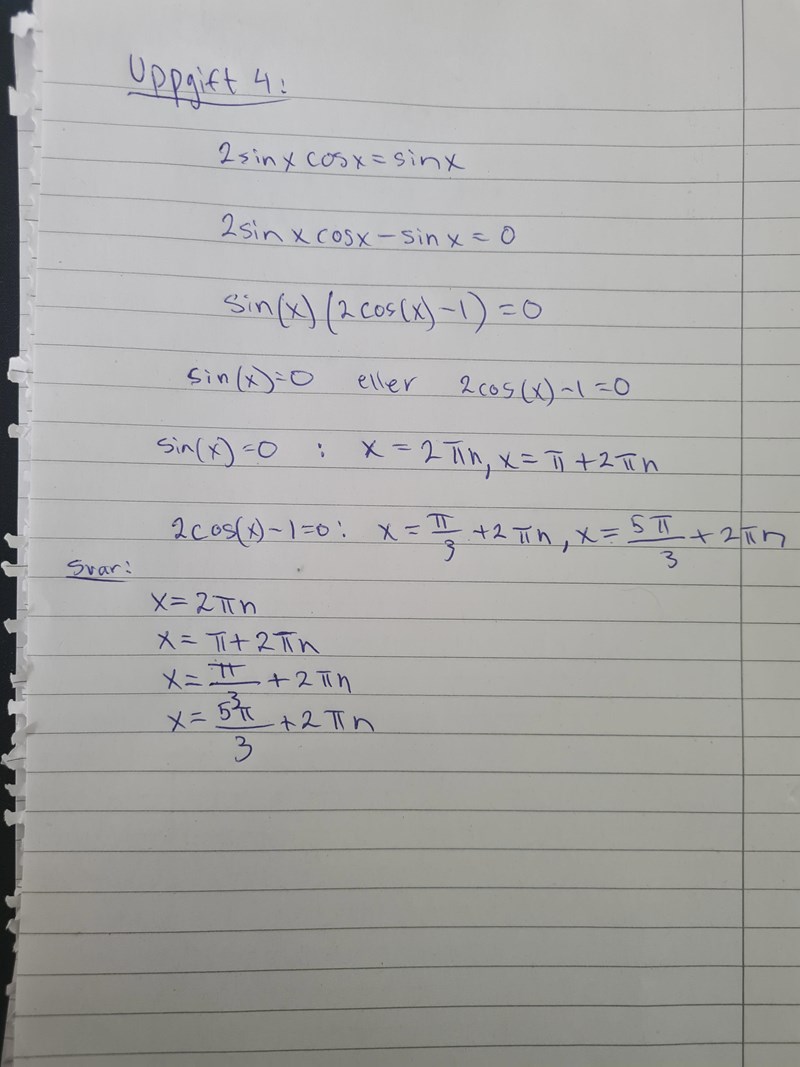 Uppgift 4:
2sinx cosx = sinx
2sinx cosx - sinx = 0
sin(x) (2cos(x)-1) = 0
sin(x)=0 eller 2cos(x)-1=0
sin(x)=0 : x = 2πn, x = π + 2πn
2cos(x)-1=0: x = π/3 + 2πn, x = 5π/3 + 2πn
Svar:
x = 2πn
x = π + 2πn
x = π/3 + 2πn
x = 5π/3 + 2πn